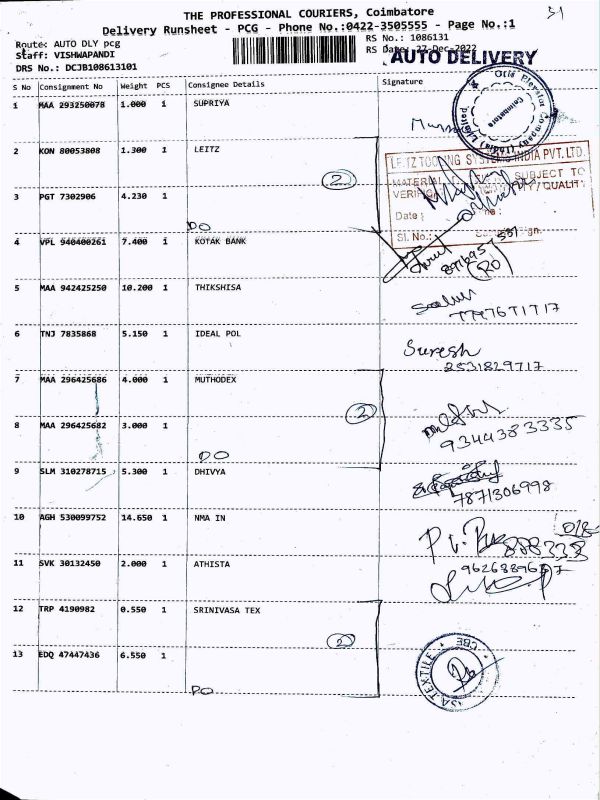 THE PROFESSIONAL COURIERS, Coimbatore
51
Delivery Runsheet - PCG - Phone No.:0422-3505555 - Page No.:1
Route: AUTO DLY pcg
RS No.: 1086131
Staff: VISHWAPANDI
RS Date: 27-Dec-2022
AUTO DELIVERY
DRS No.: DCJB108613101
S No Consignment No Weight PCS Consignee Details Signature
1 MAA 293250078 1.000 1 SUPRIYA
Otis Elevator Company (India)
Coimbatore
2 KON 80053808 1.300 1 LEITZ
2
LEITZ TOOLING SYSTEMS INDIA PVT. LTD.
MATERIAL SUBJECT TO
VERIFI QTY / QUALITY
Date :
Sl. No.:
3 PGT 7302906 4.230 1
DO
4 VPL 940400261 7.400 1 KOTAK BANK
(RO)
5 MAA 942425250 10.200 1 THIKSHISA
6 TNJ 7835868 5.150 1 IDEAL POL
Suresh
2531829717
7 MAA 296425686 4.000 1 MUTHODEX
2
8 MAA 296425682 3.000 1
9344383335
DO
9 SLM 310278715 5.300 1 DHIVYA
7871306998
10 AGH 530099752 14.650 1 NMA IN
11 SVK 30132450 2.000 1 ATHISTA
12 TRP 4190982 0.550 1 SRINIVASA TEX
2
SA TEXTILE * CBE
13 EDQ 47447436 6.550 1
DO